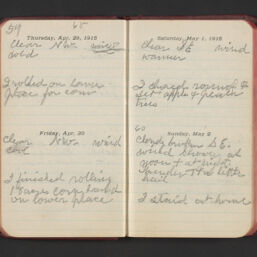 59
60
Thursday, Apr. 29, 1915
Clear N.W. wind
I rolled on lower
place for corn
Friday, Apr. 30
Clear N.W. wind
I finished rolling
corn land
on lower place
Saturday, May 1, 1915
Clear SE wind
warmer
I chored around &
set apple & peach
trees
60
Sunday, May 2
Cloudy S.E.
wind shower at
noon & at night
thunder & little
hail
I staid at home